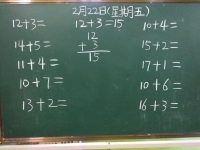 2月22日(星期五)
12+3=
12+3=15
10+4=
14+5=
12
+ 3
15
15+2=
11+4=
17+1=
10+7=
10+6=
13+2=
16+3=